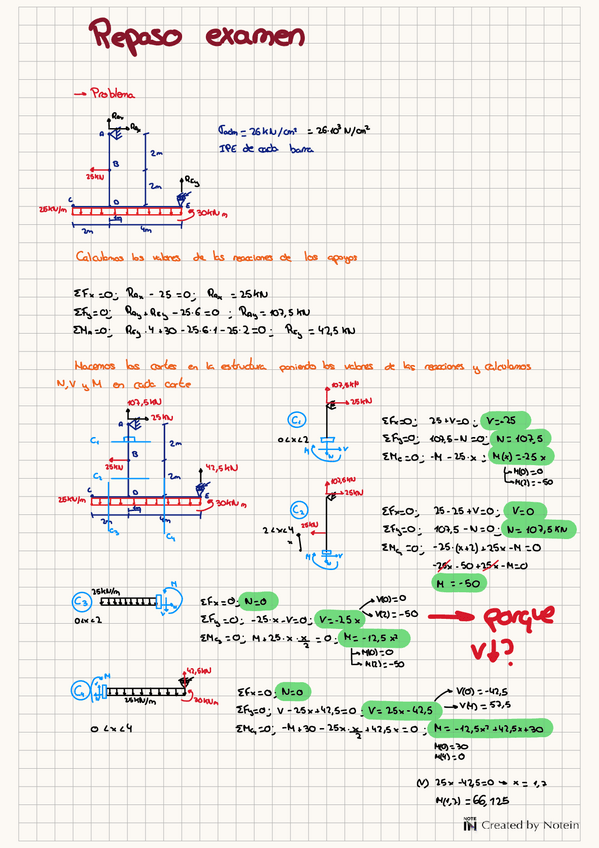 Repaso examen
→ Problema
σadm = 26 KN/cm² = 26·10³ N/cm²
IPE de cada barra
RAy
RAx
A
2m
B
25KN
2m
REy
C
D
E
25KN/m
30KN m
1m
2m
4m
Calculamos los valores de las reacciones de los apoyos
ΣFx=0; RAx - 25 = 0; RAx = 25KN
ΣFy=0; RAy + REy - 25·6 = 0; RAy = 107,5 KN
ΣMA=0; REy·4 + 30 - 25·6·1 - 25·2 = 0; REy = 42,5 KN
Hacemos los cortes en la estructura poniendo los valores de las reacciones y calculamos
N, V y M en cada corte
107,5KN
25KN
A
C1
2m
B
25KN
C2
2m
42,5KN
C
D
E
25KN/m
30KNm
2m
4m
C3
C4
C1
0<x<2
107,5KN
25KN
M
N
V
ΣFx=0; 25+V=0; V=-25
ΣFy=0; 107,5-N=0; N=107,5
ΣMC1=0; -M-25·x; M(x)=-25x
M(0)=0
M(2)=-50
C2
2<x<4
x
107,5KN
25KN
25KN
M
N
V
ΣFx=0; 25-25+V=0; V=0
ΣFy=0; 107,5-N=0; N=107,5 KN
ΣMC2=0; -25·(x+2)+25x-M=0
-25x-50+25x-M=0
M=-50
C3
0<x<2
25KN/m
M
N
V
ΣFx=0; N=0
ΣFy=0; -25·x-V=0; V=-25x
V(0)=0
V(2)=-50
ΣMC3=0; M+25·x·x/2=0; M=-12,5x²
M(0)=0
M(2)=-50
→ porque
V↓?
C4
0<x<4
M
N
V
25KN/m
42,5KN
30KNm
ΣFx=0; N=0
ΣFy=0; V-25x+42,5=0; V=25x-42,5
V(0)=-42,5
V(4)=57,5
ΣMC4=0; -M+30-25x·x/2+42,5x=0; M=-12,5x²+42,5x+30
M(0)=30
M(4)=0
(V) 25x-42,5=0 → x=1,7
M(1,7)=66,125
NOTE IN Created by Notein